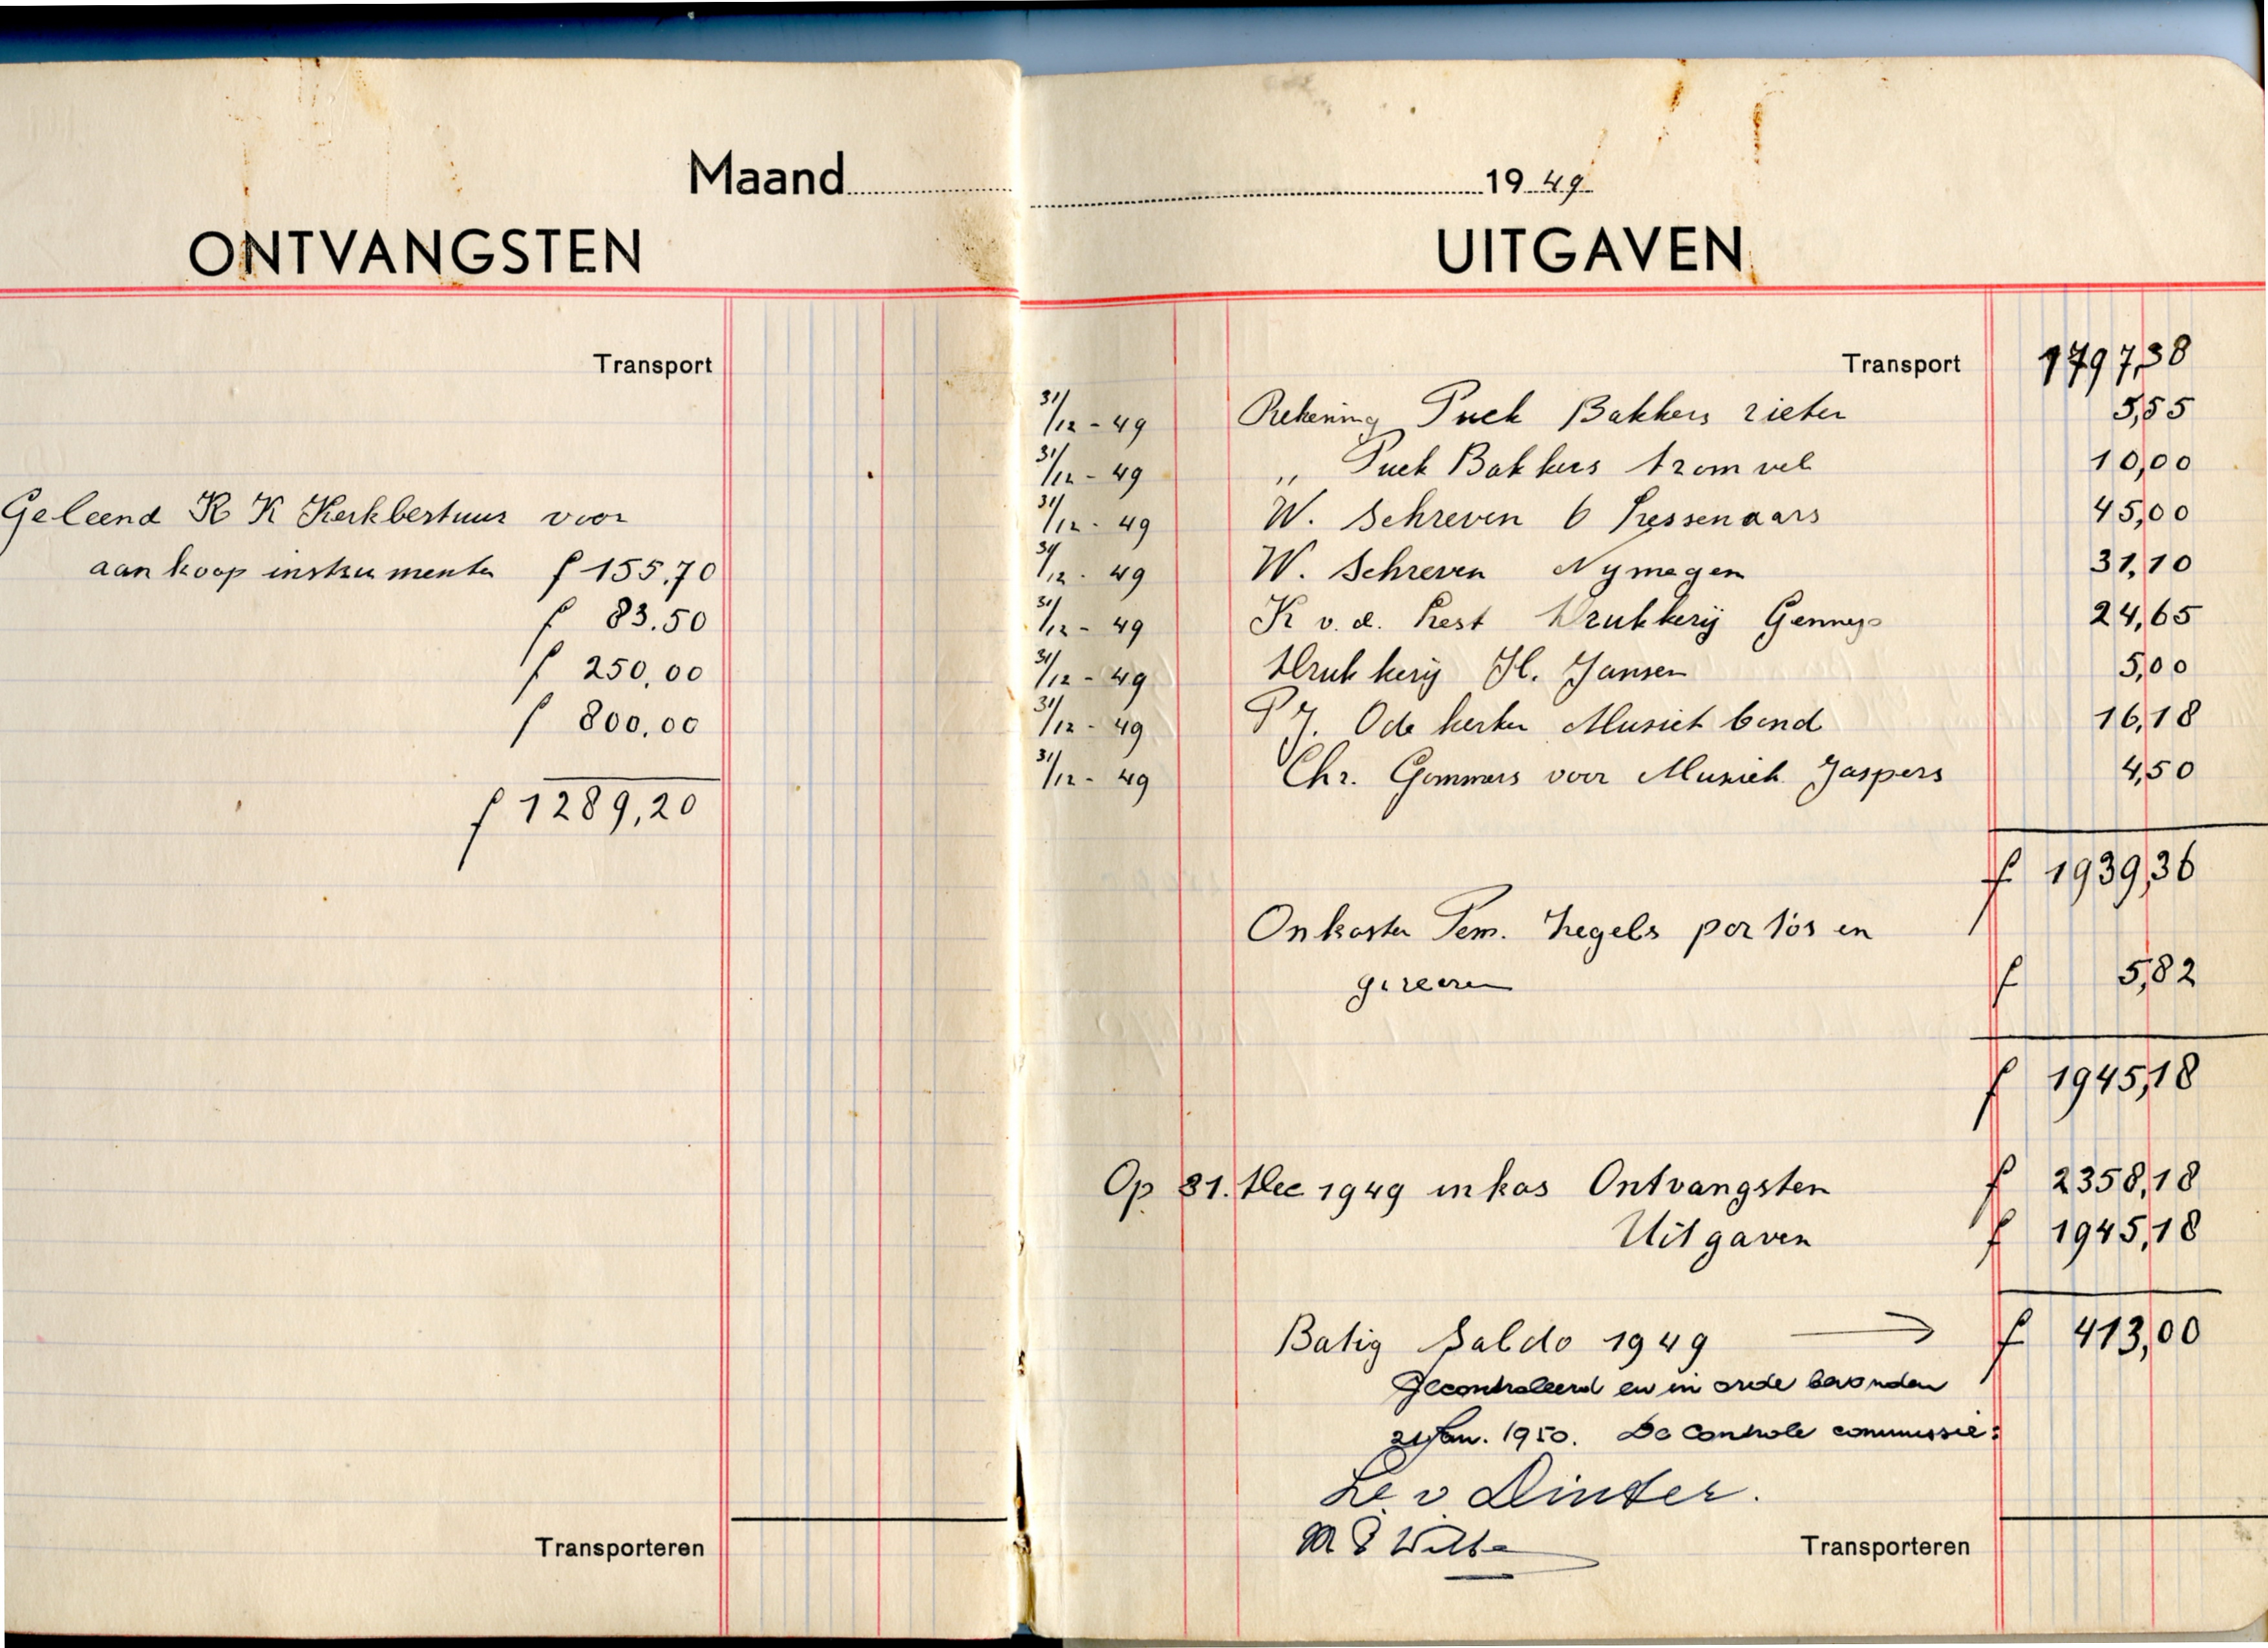 Maand 1949
ONTVANGSTEN
Transport
Geleend R K Kerkbestuur voor
aankoop instrumenten f 155,70
f 83.50
f 250,00
f 800,00
f 1289,20
Transporteren
UITGAVEN
Transport 1797,38
31/12-49 Rekening Puck Bakkers rieten 5,55
31/12-49 ,, Puck Bakkers tromvel 10,00
31/12-49 W. Schreven 6 Lessenaars 45,00
31/12-49 W. Schreven Nymegen 31,10
31/12-49 K v.d. Drukkerij Gennep 24,65
31/12-49 Drukkerij H. Jansen 5,00
31/12-49 P.J. Odekerken Musiek bond 16,18
31/12-49 Chr. Gommars voor Musiek Jaspers 4,50
f 1939,36
Onkosten Pem. Zegels porto's en
gireeren f 5,82
f 1945,18
Op 31. Dec 1949 in kas Ontvangsten f 2358,18
Uitgaven f 1945,18
Batig Saldo 1949 → f 413,00
Gecontroleerd en in orde bevonden
21 Jan. 1950. De Controle commissie:
v Dinter.
Transporteren